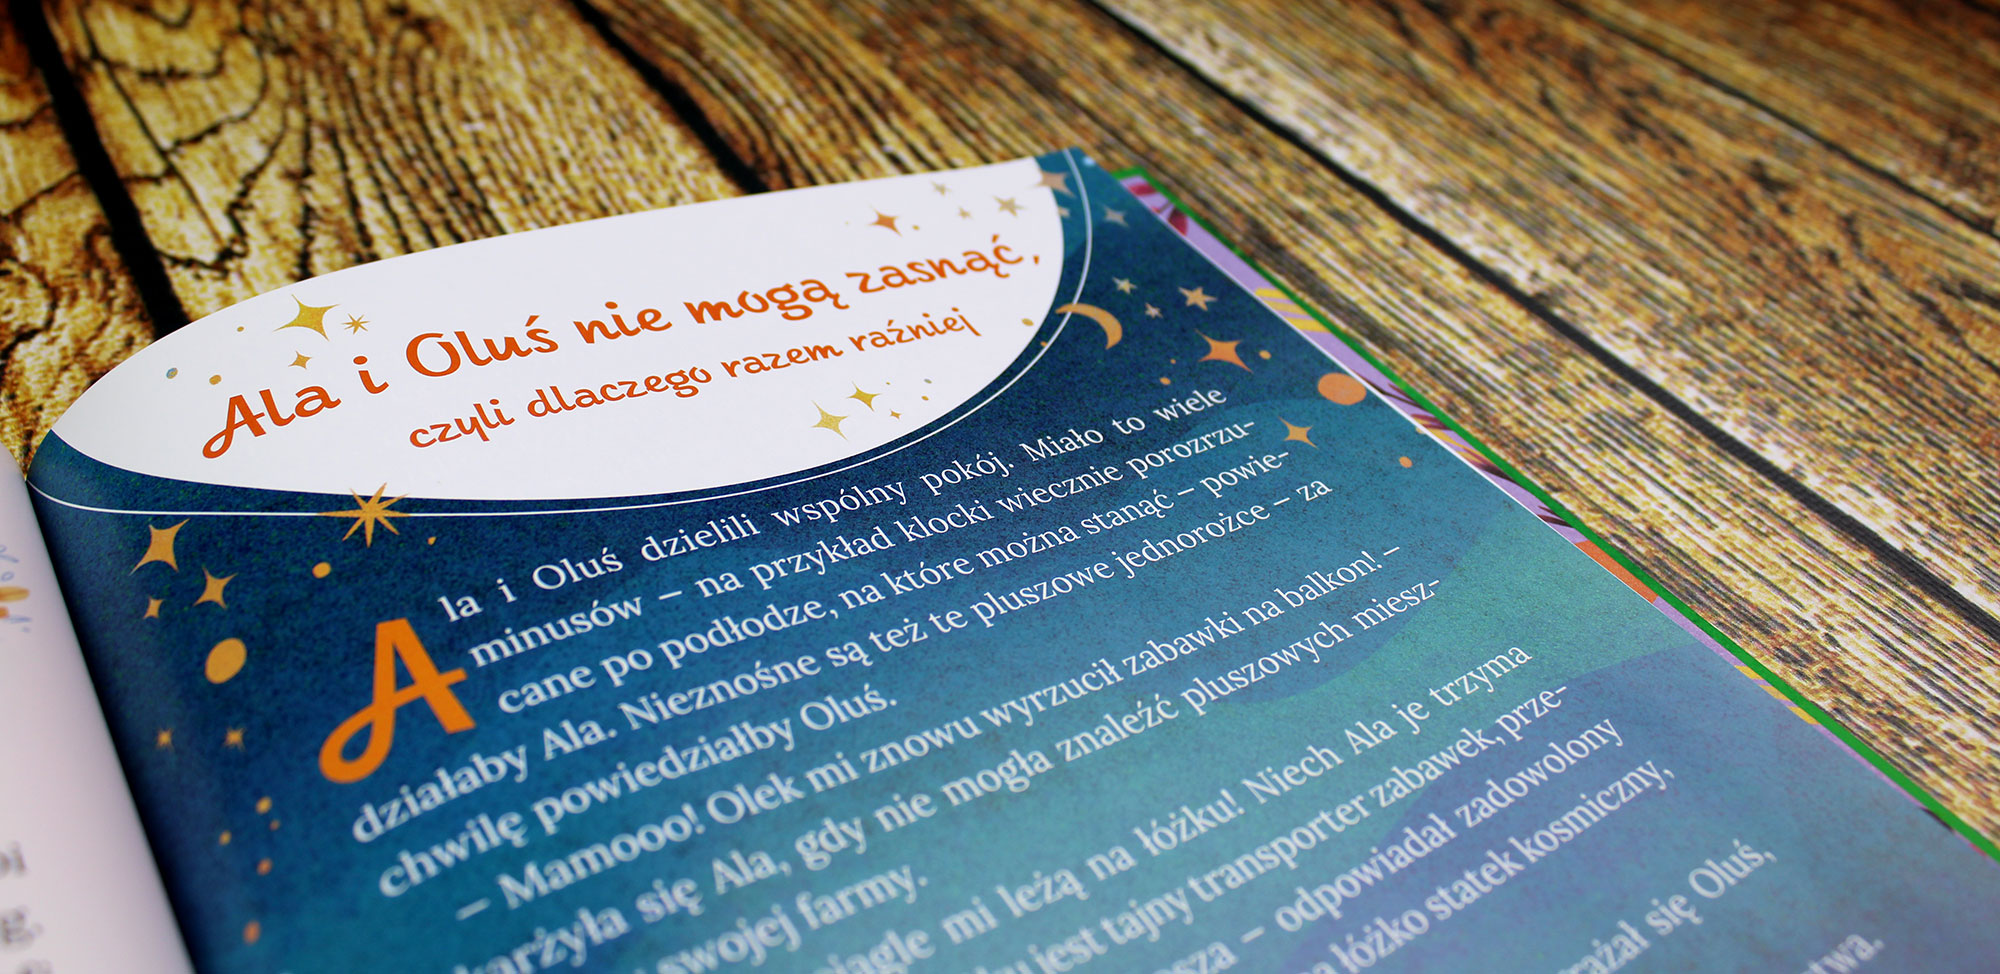 Ala i Oluś nie mogą zasnąć,
czyli dlaczego razem raźniej
Ala i Oluś dzielili wspólny pokój. Miało to wiele
minusów – na przykład klocki wiecznie porozrzu-
cane po podłodze, na które można stanąć – powie-
działaby Ala. Nieznośne są też te pluszowe jednorożce – za
chwilę powiedziałby Oluś.
– Mamooo! Olek mi znowu wyrzucił zabawki na balkon! –
się Ala, gdy nie mogła znaleźć pluszowych miesz-
swojej farmy.
mi leżą na łóżku! Niech Ala je trzyma
jest tajny transporter zabawek, prze-
– odpowiadał zadowolony
łóżko statek kosmiczny,
się Oluś,